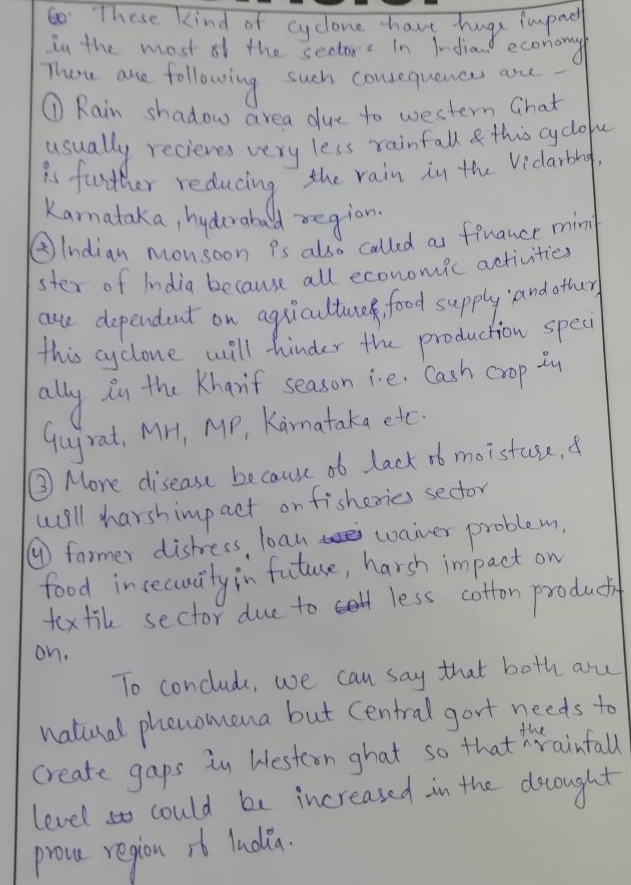 So These kind of cyclone have huge impact
in the most of the sectors In Indian economy.
There are following such consequences are –
① Rain shadow area due to western Ghat
usually recieves very less rainfall & this cyclone
is further reducing the rain in the Vidarbha,
Karnataka, hyderabad region.
② Indian Monsoon is also called as finance mini
ster of India because all economic activities
are dependent on agriculture, food supply and other,
this cyclone will hinder the production speci
ally in the Kharif season i.e. Cash crop in
Gujrat, MH, MP, Karnataka etc.
③ More disease because of lack of moisture, &
will harsh impact on fisheries sector
④ farmer distress, loan waiver problem,
food insecurity in future, harsh impact on
textile sector due to less cotton producti
on.
To conclude, we can say that both are
natural phenomena but Central govt needs to
create gaps in Western ghat so that the rainfall
level could be increased in the drought
prone region of India.